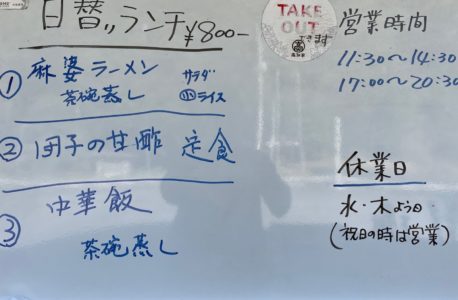 日替ランチ ¥800-
① 麻婆ラーメン サラダ
茶碗蒸し 小ライス
② 団子の甘酢 定食
③ 中華飯
茶碗蒸し
TAKE
OUT
できます
営業時間
11:30〜14:30
17:00〜20:30
休業日
水・木よう日
(祝日の時は営業)